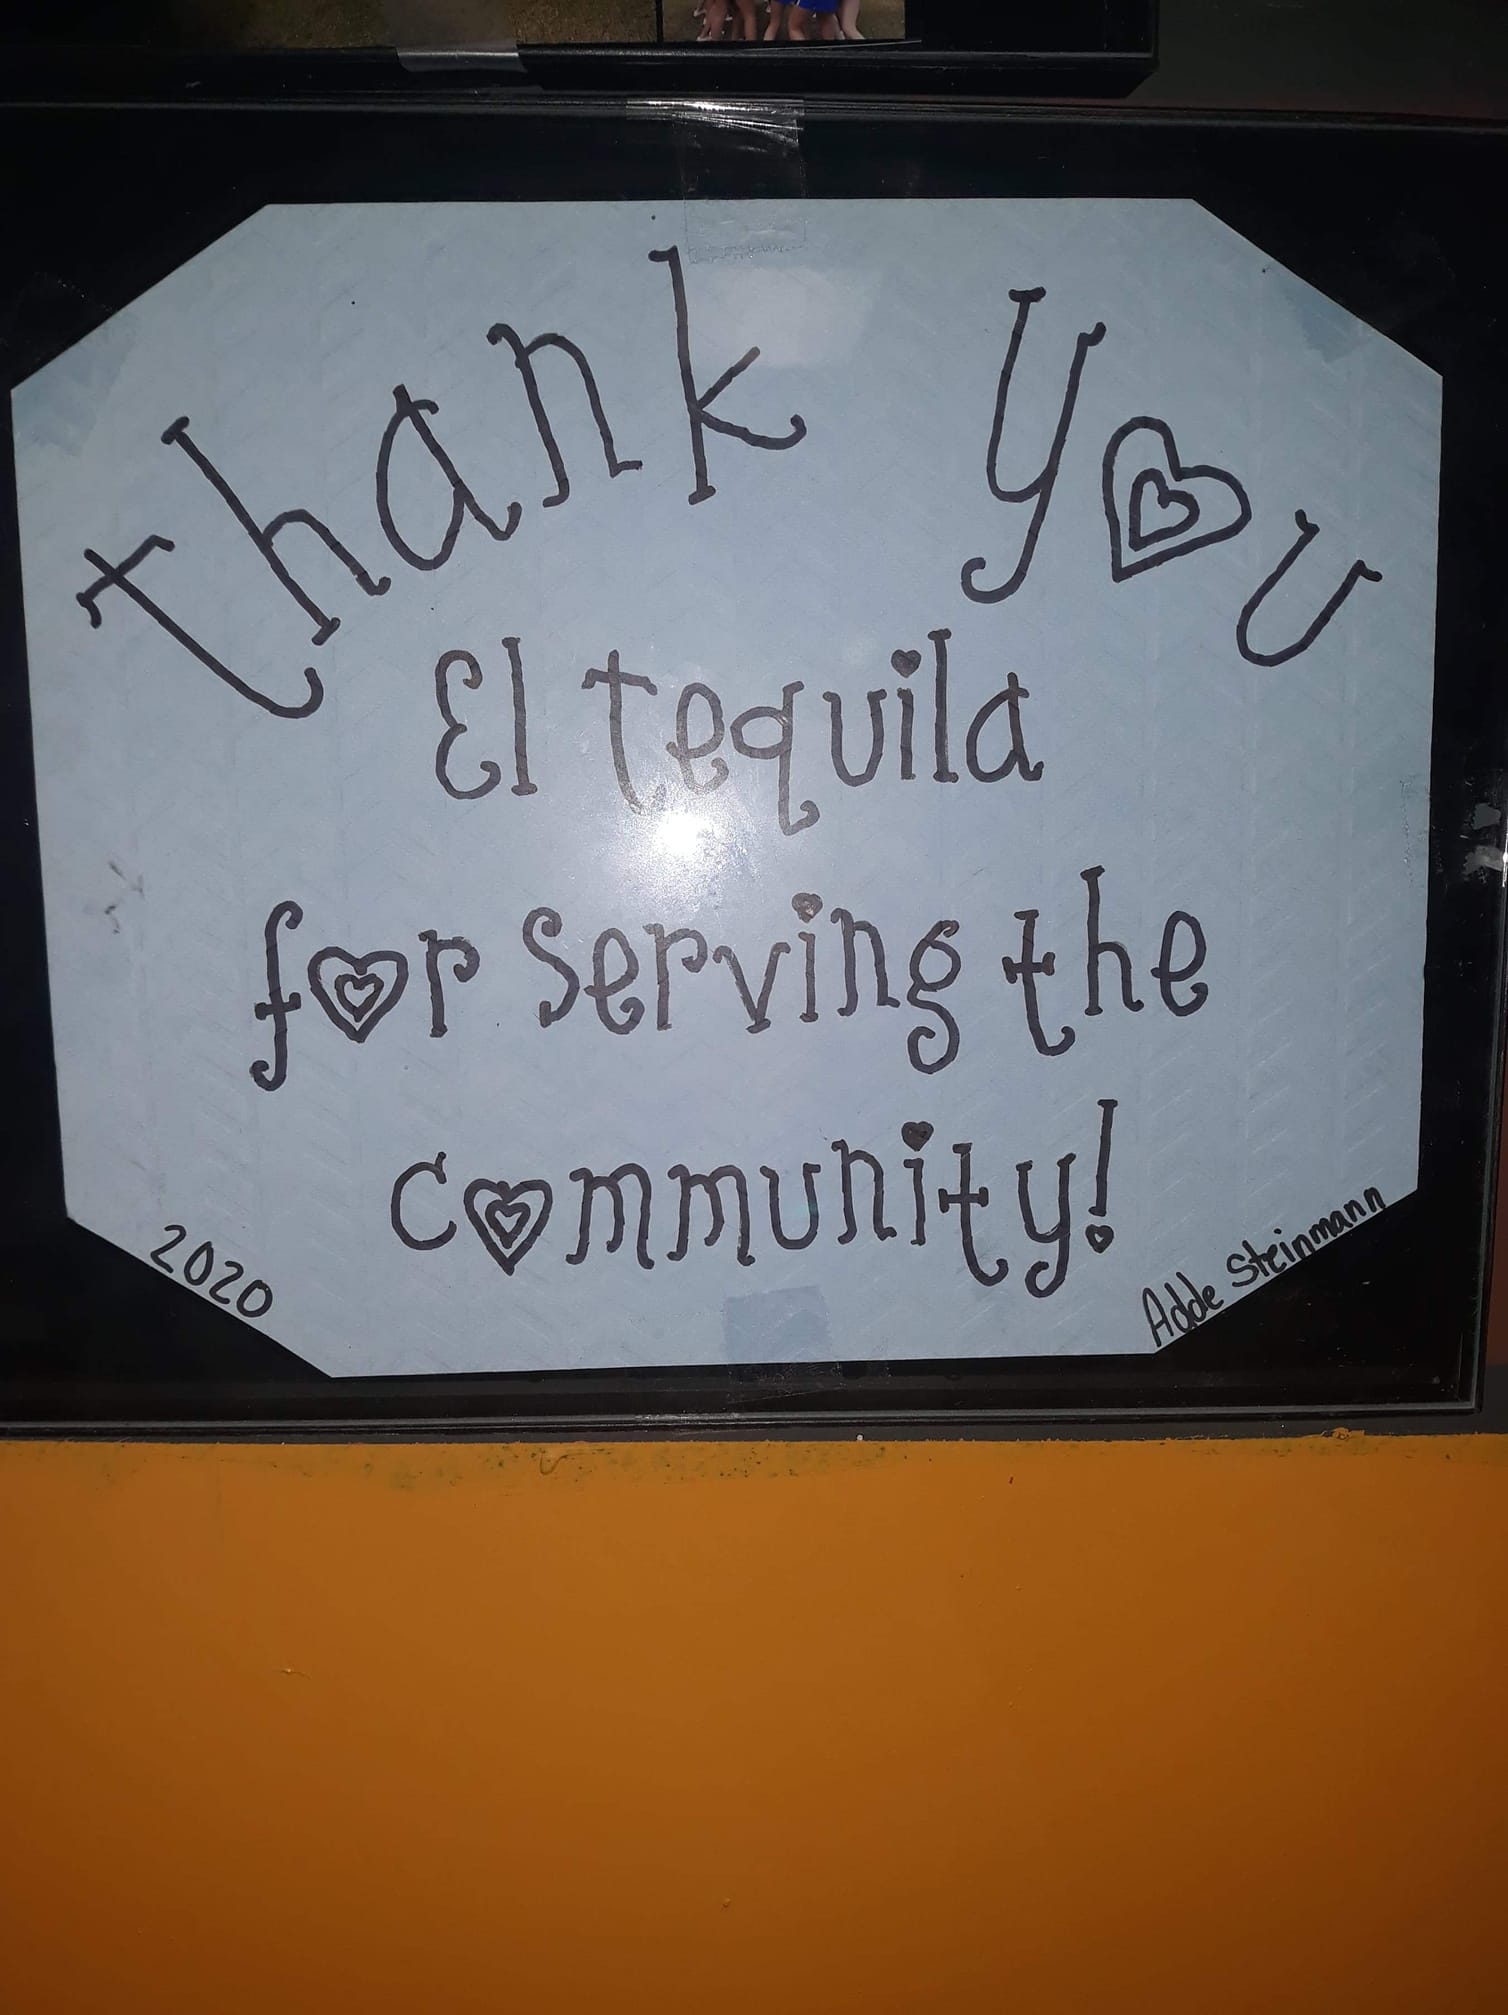 thank you
El tequila
for serving the
community!
2020
Adde Steinmann